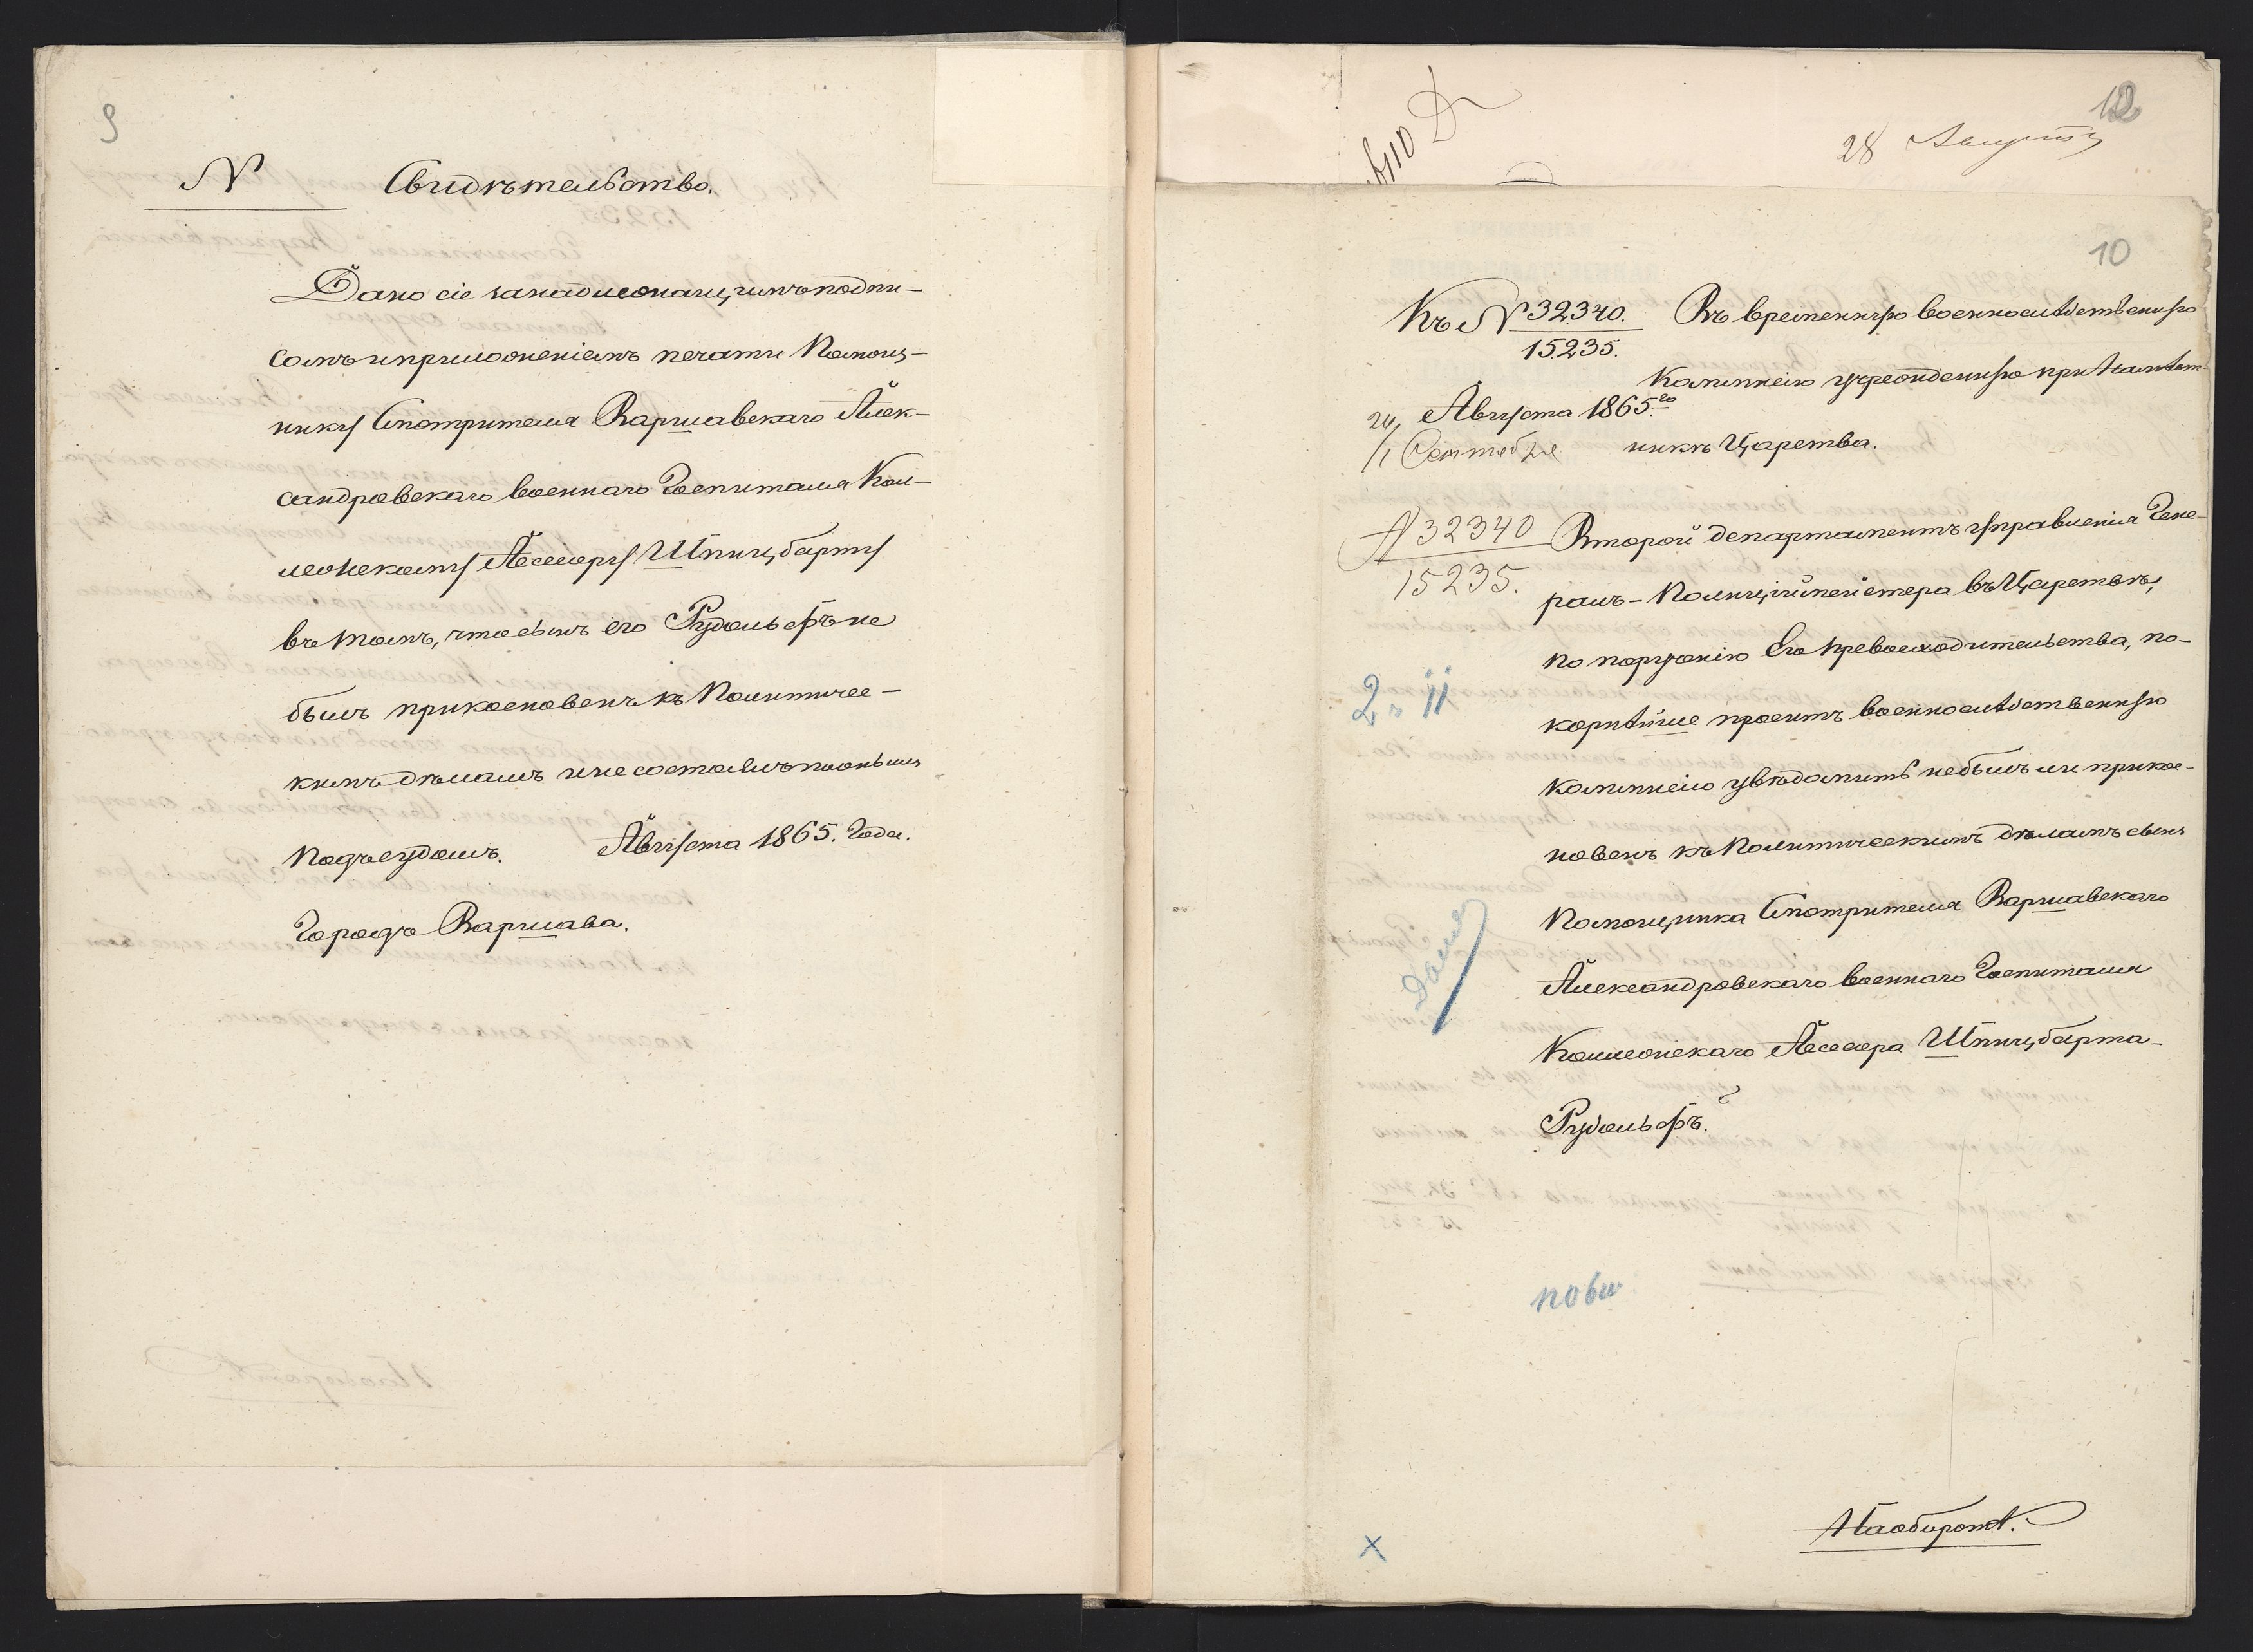 9
N Свидѣтельство.
Дано сіе занадлежащимъ подпи-
сомъ и приложеніемъ печати Помощ-
нику Смотрителя Варшавскаго Алек-
сандровскаго военнаго Госпиталя Кол-
лежскому Ассесору Шпицбарту
въ томъ, что сынъ его Рудольфъ не
былъ прикосновенъ къ Политичес-
кимъ дѣламъ и не состоялъ по онымъ
подъ судомъ. Августа 1865. Года.
Городъ Варшава.
12
28 Августа
10
Къ N 32340. Въ временную военнослѣдственную
15235.
Коммисію учрежденную при Намѣст-
20/ Августа 1865.го
/1 Сентября никѣ Царства.
N 32340 Второй департаментъ управленія Гене-
15235.
ралъ-Полиціймейстера въ Царствѣ,
по порученію Его Превосходительства, по-
корнѣйше проситъ военнослѣдственную
Коммисію увѣдомить небылъ ли прикос-
новенъ къ Политическимъ дѣламъ сынъ
Помощника Смотрителя Варшавскаго
Александровскаго военнаго Госпиталя
Коллежскаго Ассесора Шпицбарта-
Рудольфъ.
Наоборотѣ.
x